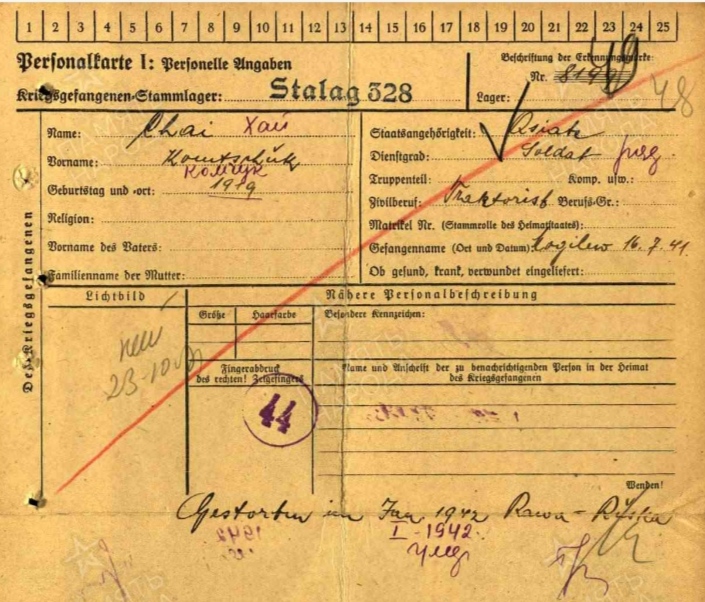 1 2 3 4 5 6 7 8 9 10 11 12 13 14 15 16 17 18 19 20 21 22 23 24 25
Personalkarte I: Personelle Angaben
Kriegsgefangenen-Stammlager: Stalag 328
Beschriftung der Erkennungsmarke
Nr.
Lager:
48
Des Kriegsgefangenen
Name: Chai Хай
Vorname: Komtschuk
Комчук
Geburtstag und -ort: 1919
Religion:
Vorname des Vaters:
Familienname der Mutter:
Staatsangehörigkeit: Asiate
Dienstgrad: Soldat ряд
Truppenteil: Komp. usw.:
Zivilberuf: Traktorist Berufs-Gr.:
Matrikel Nr. (Stammrolle des Heimatstaates):
Gefangennahme (Ort und Datum): Mogilew 16.7.41
Ob gesund, krank, verwundet eingeliefert:
Lichtbild
Nähere Personalbeschreibung
Größe Haarfarbe
Besondere Kennzeichen:
Fingerabdruck
des rechten! Zeigefingers
Name und Anschrift der zu benachrichtigenden Person in der Heimat
des Kriegsgefangenen
44
Wenden!
Gestorben im Jan 1942 Rawa-Ruska
I-1942